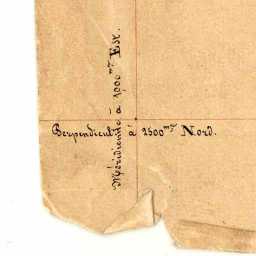 Méridienne à 1900.ᵐ Est.
Perpendicul.ʳᵉ à 2500ᵐ.ˢ Nord.